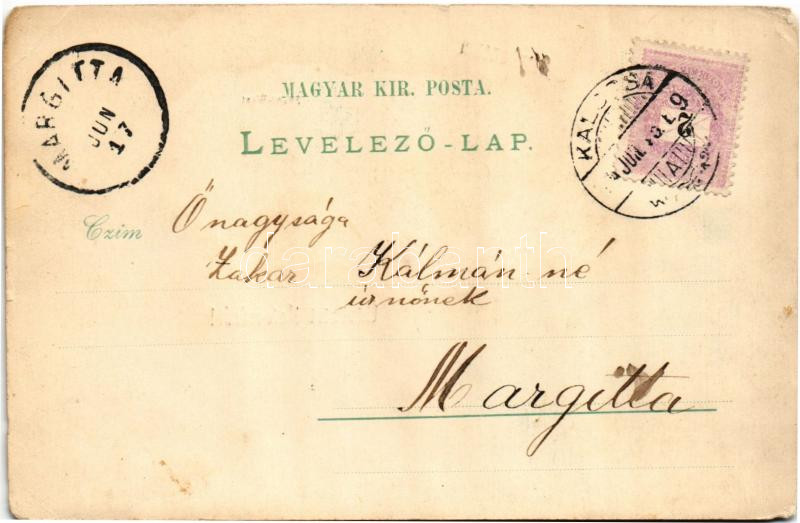 MARGITTA
JUN
17
MAGYAR KIR. POSTA.
LEVELEZŐ-LAP.
KALOCSA
JUN.
Czim
Őnagysága
Zakar Kálmán-né
úrnőnek
Margitta
darabanth.com